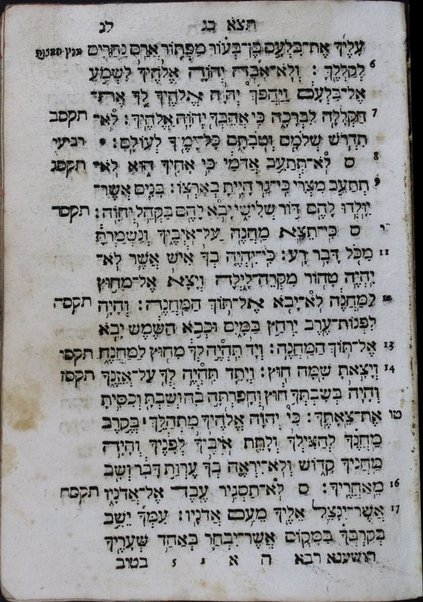 תצא כג לג
עָלֶיךָ אֶת־בִּלְעָם בֶּן־בְּעוֹר מִפְּתוֹר אֲרַם נַהֲרַיִם
6 לְקַלְלֶךָּ׃ וְלֹא־אָבָה יְהוָה אֱלֹהֶיךָ לִשְׁמֹעַ
אֶל־בִּלְעָם וַיַּהֲפֹךְ יְהוָה אֱלֹהֶיךָ לְּךָ אֶת־
7 הַקְּלָלָה לִבְרָכָה כִּי אֲהֵבְךָ יְהוָה אֱלֹהֶיךָ׃ לֹא־ תקסב
תִדְרֹשׁ שְׁלֹמָם וְטֹבָתָם כָּל־יָמֶיךָ לְעוֹלָם׃ רביעי
8 ס לֹא־תְתַעֵב אֲדֹמִי כִּי אָחִיךָ הוּא לֹא־ תקסג
9 תְתַעֵב מִצְרִי כִּי־גֵר הָיִיתָ בְאַרְצוֹ׃ בָּנִים אֲשֶׁר־
יִוָּלְדוּ לָהֶם דּוֹר שְׁלִישִׁי יָבֹא לָהֶם בִּקְהַל יְהוָה׃ תקסד
ס כִּי־תֵצֵא מַחֲנֶה עַל־אֹיְבֶיךָ וְנִשְׁמַרְתָּ
11 מִכֹּל דָּבָר רָע׃ כִּי־יִהְיֶה בְךָ אִישׁ אֲשֶׁר לֹא־
יִהְיֶה טָהוֹר מִקְּרֵה־לָיְלָה וְיָצָא אֶל־מִחוּץ
לַמַּחֲנֶה לֹא־יָבֹא אֶל־תּוֹךְ הַמַּחֲנֶה׃ וְהָיָה תקסה
לִפְנוֹת־עֶרֶב יִרְחַץ בַּמָּיִם וּכְבֹא הַשֶּׁמֶשׁ יָבֹא
13 אֶל־תּוֹךְ הַמַּחֲנֶה׃ וְיָד תִּהְיֶה לְךָ מִחוּץ לַמַּחֲנֶה תקסו
14 וְיָצָאתָ שָׁמָּה חוּץ׃ וְיָתֵד תִּהְיֶה לְךָ עַל־אֲזֵנֶךָ תקסז
וְהָיָה בְּשִׁבְתְּךָ חוּץ וְחָפַרְתָּה בָהּ וְשַׁבְתָּ וְכִסִּיתָ
טו אֶת־צֵאָתֶךָ׃ כִּי יְהוָה אֱלֹהֶיךָ מִתְהַלֵּךְ בְּקֶרֶב
מַחֲנֶךָ לְהַצִּילְךָ וְלָתֵת אֹיְבֶיךָ לְפָנֶיךָ וְהָיָה
מַחֲנֶיךָ קָדוֹשׁ וְלֹא־יִרְאֶה בְךָ עֶרְוַת דָּבָר וְשָׁב
16 מֵאַחֲרֶיךָ׃ ס לֹא־תַסְגִּיר עֶבֶד אֶל־אֲדֹנָיו תקסח
17 אֲשֶׁר־יִנָּצֵל אֵלֶיךָ מֵעִם אֲדֹנָיו׃ עִמְּךָ יֵשֵׁב
בְּקִרְבְּךָ בַּמָּקוֹם אֲשֶׁר־יִבְחַר בְּאַחַד שְׁעָרֶיךָ
הושענא רבא ה א י ז בטוב